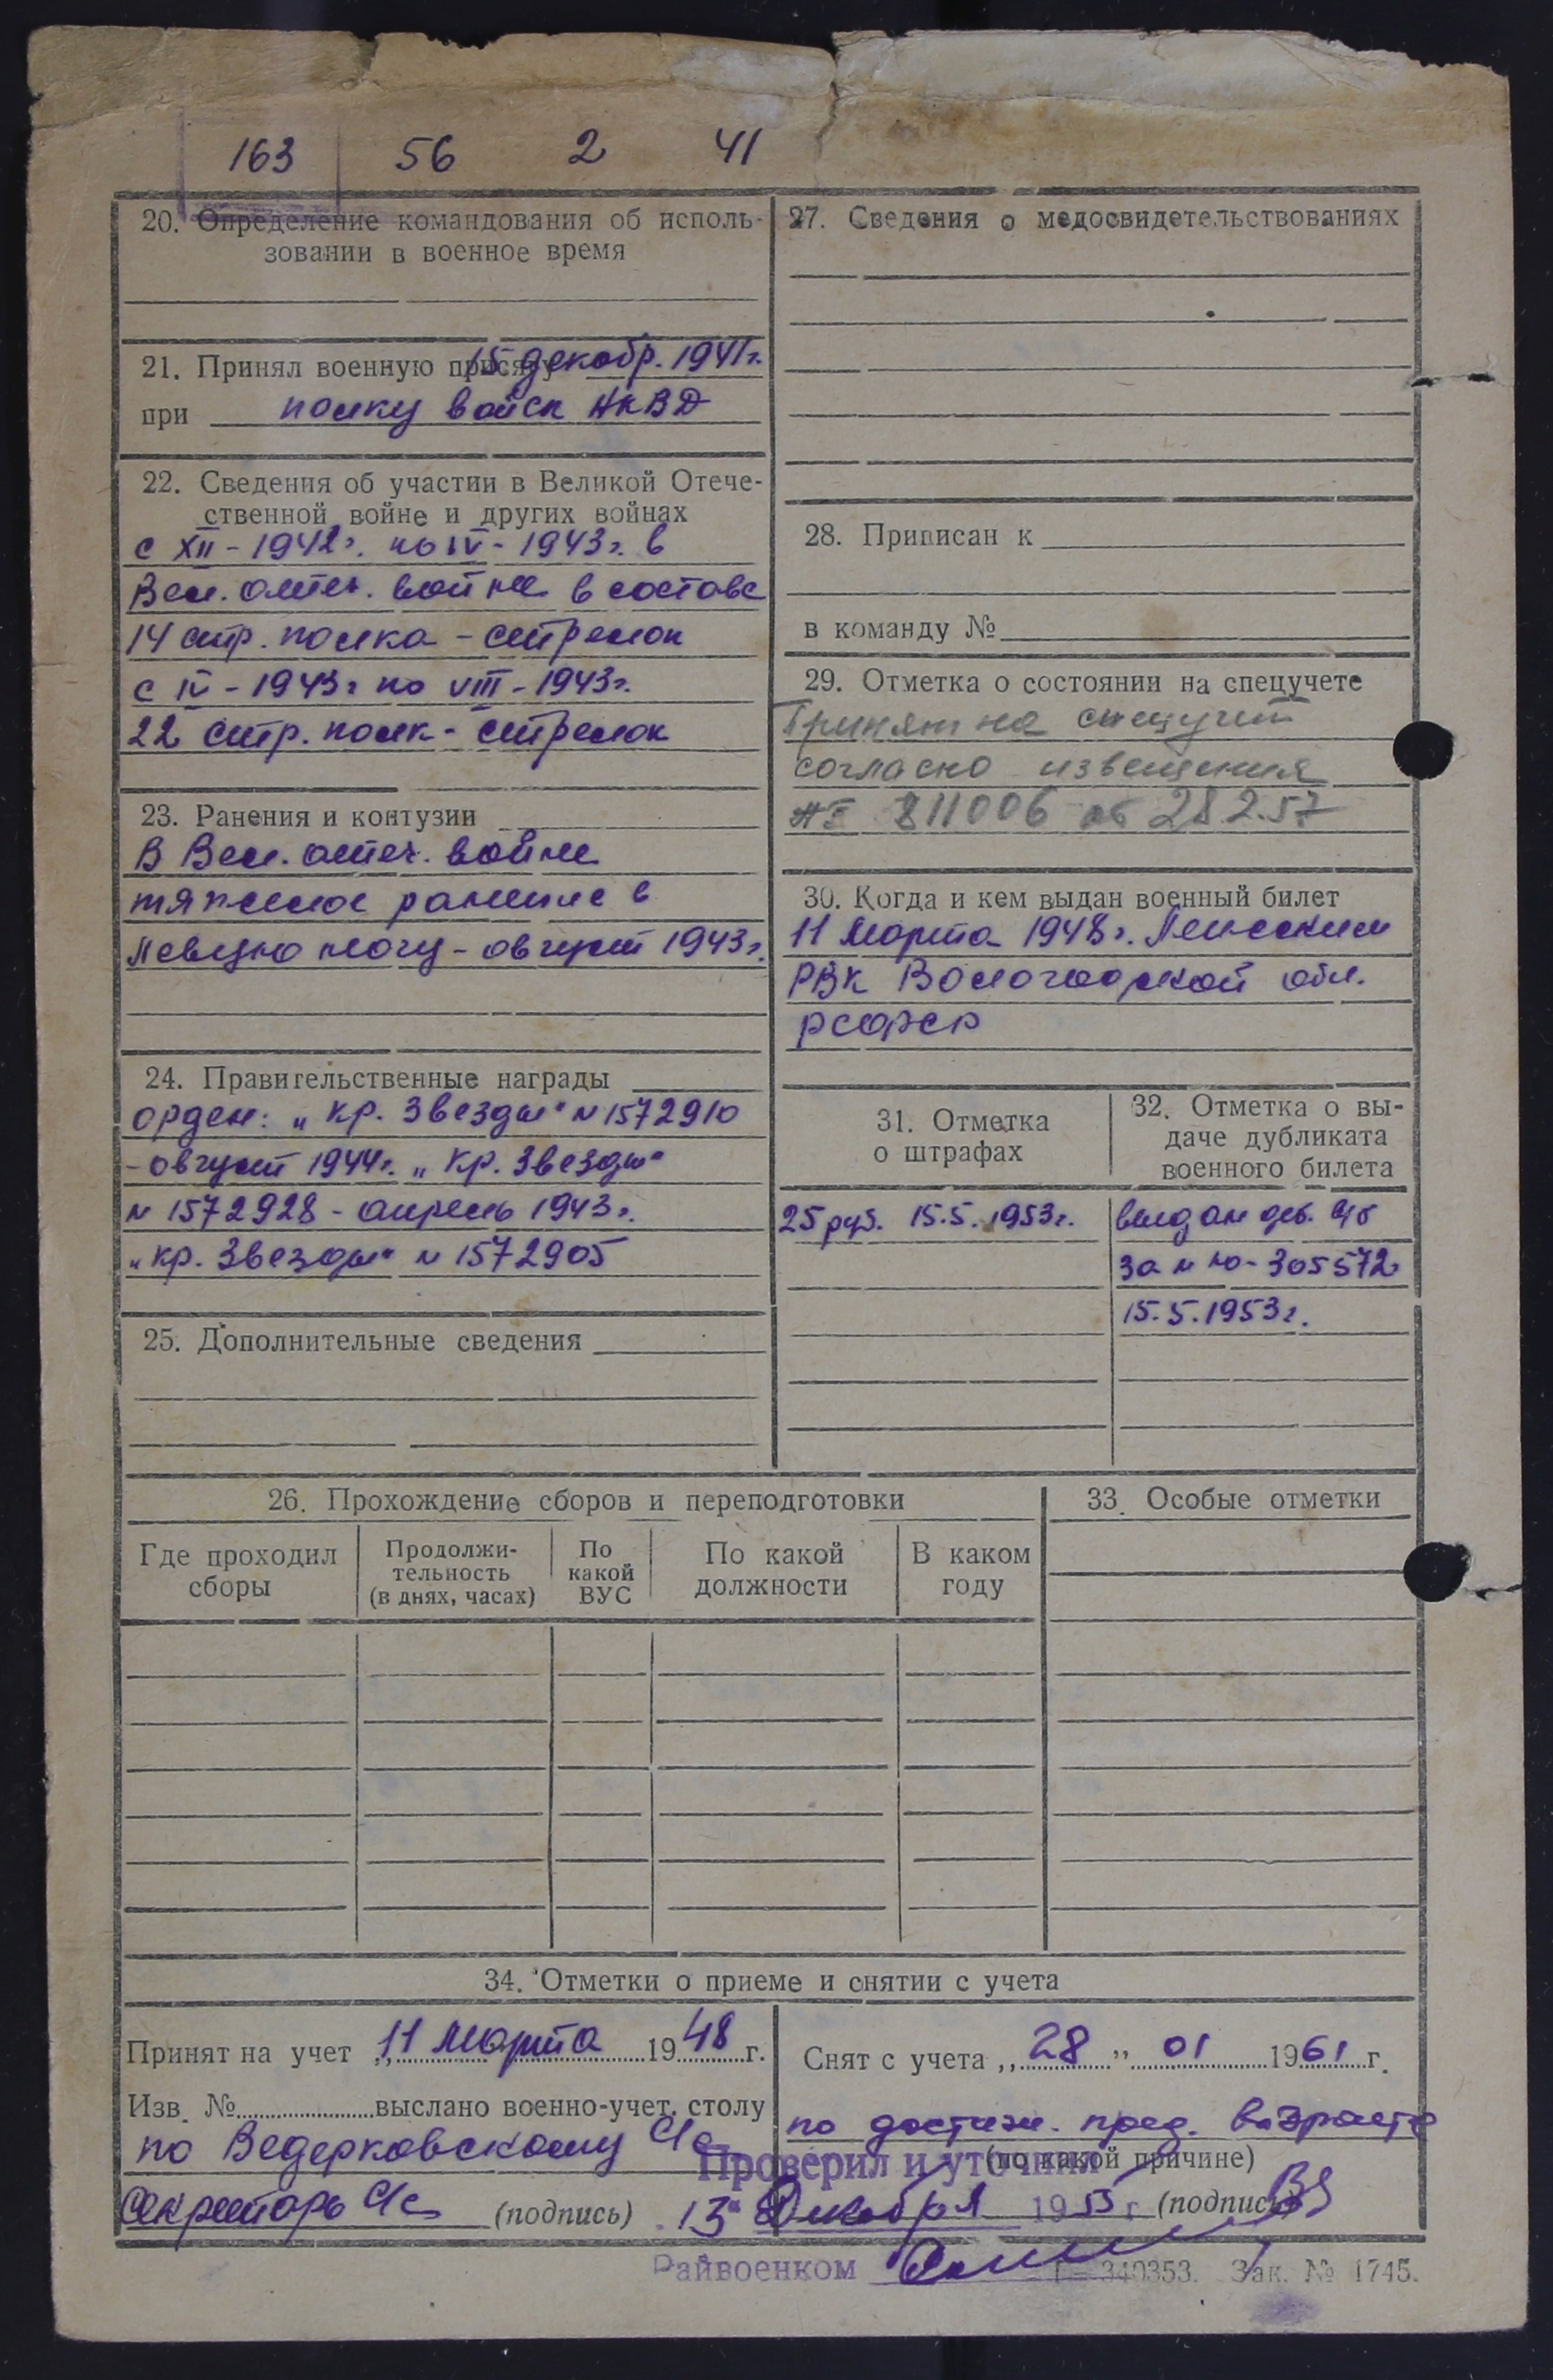 163 56 2 41
20. Определение командования об исполь-
зовании в военное время
21. Принял военную присягу 15 декабр. 1941г.
при полку войск НКВД
22. Сведения об участии в Великой Отече-
ственной войне и других войнах
с XII - 1942г. по IV - 1943г. в
Вел. отеч. войне в составе
14 стр. полка - стрелок
с IV - 1943г по VIII - 1943г.
22 стр. полк - стрелок
23. Ранения и контузии
В Вел. отеч. войне
тяжелое ранение в
левую ногу - август 1943г.
24. Правительственные награды
орден: „Кр. Звезды" № 1572910
- август 1944г. „Кр. Звезды"
№ 1572928 - апрель 1943г.
„Кр. Звезды" № 1572905
25. Дополнительные сведения
27. Сведения о медосвидетельствованиях
28. Приписан к
в команду №
29. Отметка о состоянии на спецучете
Принят на спецучет
согласно извещения
811006 от 28.2.57
30. Когда и кем выдан военный билет
11 Марта 1948г.
РВК Вологодской обл.
РСФСР
31. Отметка
о штрафах
25 руб. 15.5.1953г.
32. Отметка о вы-
даче дубликата
военного билета
выдан
за № 305572
15.5.1953г.
26. Прохождение сборов и переподготовки
Где проходил
сборы
Продолжи-
тельность
(в днях, часах)
По
какой
ВУС
По какой
должности
В каком
году
33. Особые отметки
34. Отметки о приеме и снятии с учета
Принят на учет „11 Марта 1948 г.
Изв. № выслано военно-учет. столу
по Ведерковскому с/с
Секретарь с/с (подпись)
Снят с учета „28" 01 1961 г.
по достиж. пред. возраста
(по какой причине)
(подпись)
Проверил и уточнил
13" Декабря 1953 г
Райвоенком
Г—340353. Зак. № 1745.